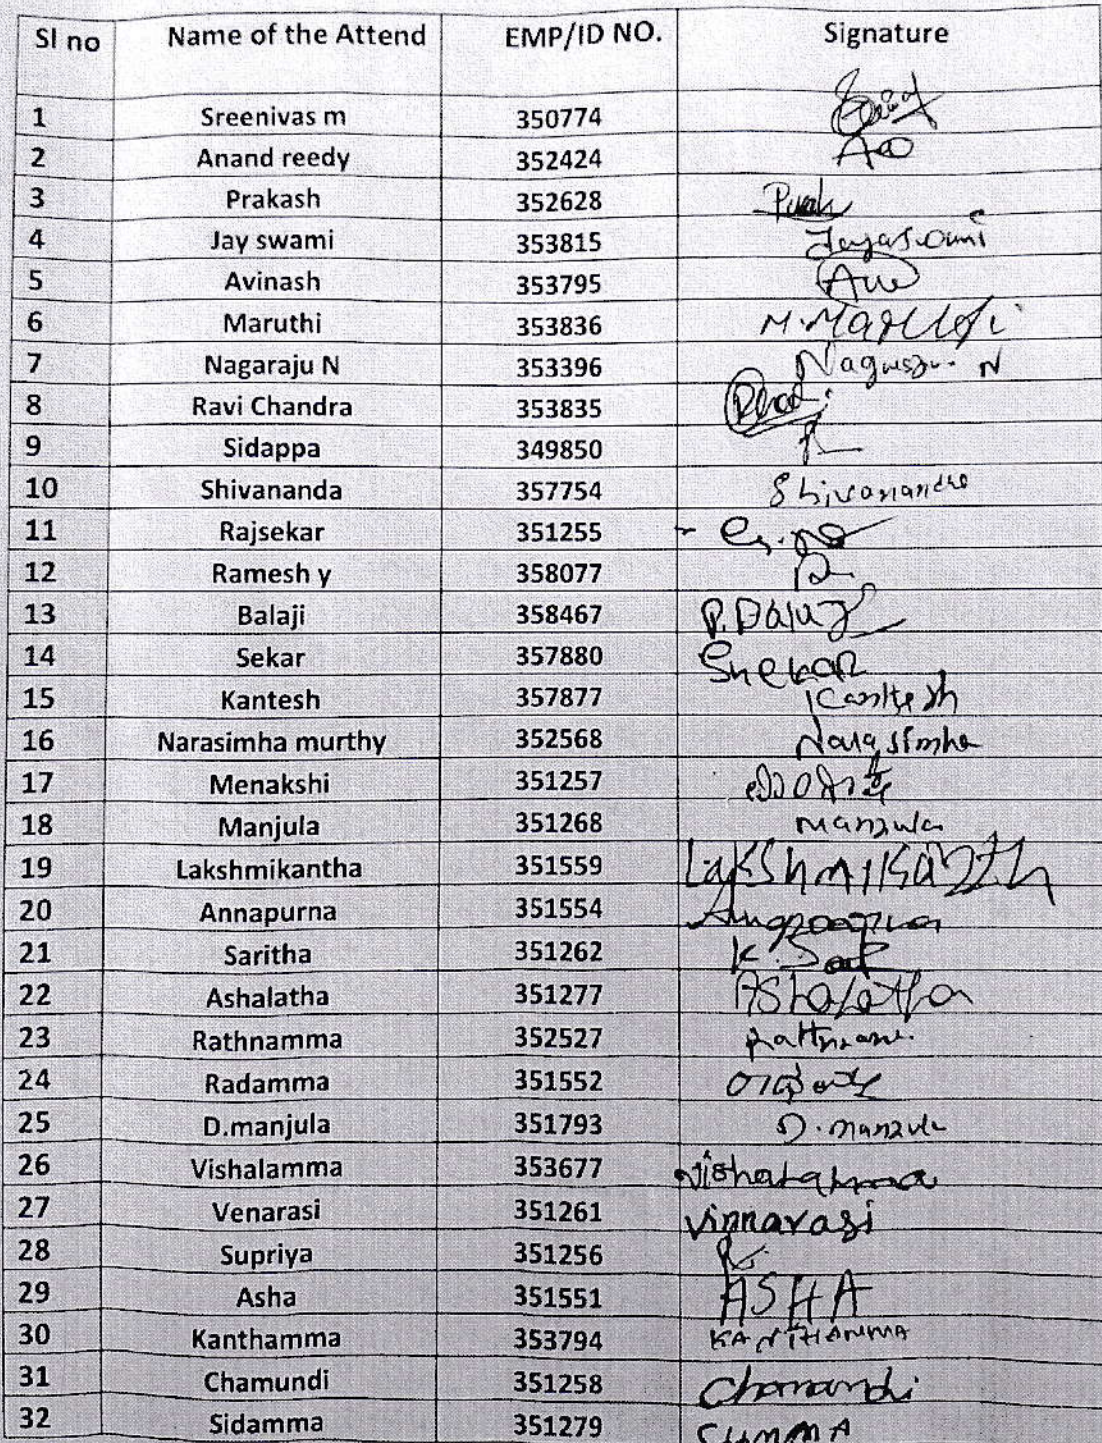 Sl no Name of the Attend EMP/ID NO. Signature
1 Sreenivas m 350774
2 Anand reedy 352424
3 Prakash 352628
4 Jay swami 353815 Jayaswami
5 Avinash 353795
6 Maruthi 353836 M. Maruthi
7 Nagaraju N 353396 Nagaraju. N
8 Ravi Chandra 353835
9 Sidappa 349850
10 Shivananda 357754 Shivananda
11 Rajsekar 351255
12 Ramesh y 358077
13 Balaji 358467 P. Balaji
14 Sekar 357880 Shekar
15 Kantesh 357877 Kantesh
16 Narasimha murthy 352568 Narasimha
17 Menakshi 351257
18 Manjula 351268 Manjula
19 Lakshmikantha 351559 Lakshmikanth
20 Annapurna 351554
21 Saritha 351262
22 Ashalatha 351277 Ashalatha
23 Rathnamma 352527
24 Radamma 351552
25 D.manjula 351793 D. manjula
26 Vishalamma 353677 Vishalamma
27 Venarasi 351261 Vinnarasi
28 Supriya 351256
29 Asha 351551 ASHA
30 Kanthamma 353794 KANTHAMMA
31 Chamundi 351258 Chamundi
32 Sidamma 351279